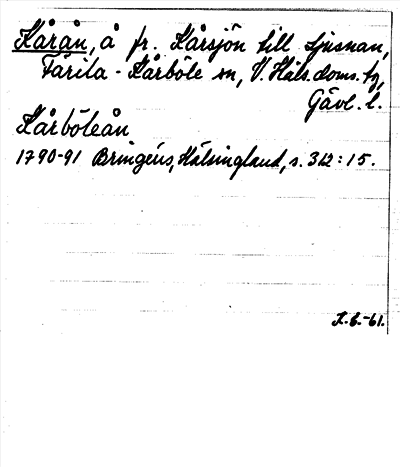 Kårån, å fr. Kårsjön till Ljusnan,
Färila-Kårböle sn, V. Häls. doms. tg,
Gävl. l.
Kårböleån
1790-91 Bringéus, Hälsingland, s. 312:15.
L.B.-61.